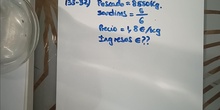 133-32) Pescado = 8550kg.
Sardinas = 5
6
Precio = 1,8 €/kg
Ingresos €??